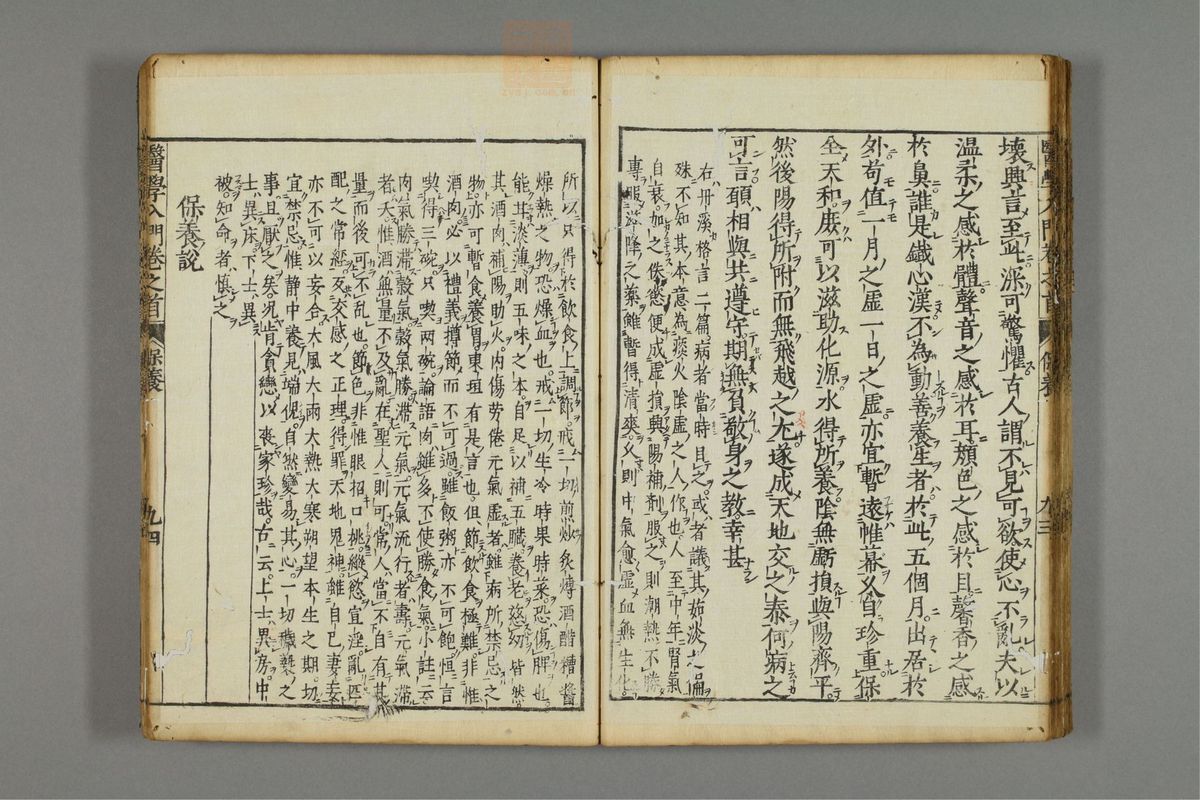 壞興言至此深可驚懼古人謂不見可欲使心不亂夫以
温柔之感於體聲音之感於耳顔色之感於目馨香之感
於鼻誰是鐵心漢不為動善養生者於此五個月出居於
外苟值一月之虛一日之虛亦宜暫遠帷幕又自珍重保
全天和庻可以滋助化源水得所養陰無虧損與陽齊平
然後陽得所附而無飛越之尤遂成天地交之泰何病之
可言頭相與共遵守期無負敬身之教幸甚
右丹溪格言二篇病者當時目之或者議其茹淡之論
殊不知其本意為痰火陰虛之人作也人至中年腎氣
自衰加之佚慾便成虛損與陽補剤服之則潮熱不勝
專服滋降之藥雖暫得清爽久則中氣愈虛血無生化
所以只得於飲食上調節戒一切煎炒炙煿酒醋糟醬
燥熱之物恐燥血也戒一切生冷時果時菜恐傷脾也
能甘淡薄則五味之本自足以補五臟養老慈幼皆然
其酒肉補陽助火内傷勞倦元氣虛者雖病所禁忌之
物亦可暫食養胃東垣有是言也但節飲食極難非惟
酒肉必以禮義撙節而不可過雖飯粥亦不可飽恒言
喫得三碗只喫兩碗論語肉雖多不使勝食氣小註云
肉氣勝滯穀氣穀氣勝滯元氣元氣流行者壽元氣滯
者夭惟酒無量不及亂在聖人則可常人當不自有其
量而後可不亂也節色非惟眼招口挑縱慾宜淫亂匹
配之常經交感之正理得罪天地鬼神雖自已妻妾
亦不可以妄合大風大雨大熱大寒朔望本生之期切
宜禁忌惟静中養見端倪自然變易其心一切穢褻之
事且厭之矣况肯貪戀以喪家珍哉古云上士異房中
士異床下士異
被知命者慎之
保養說
醫學入門卷之首
保養
九三
醫學入門卷之首
保養
九四